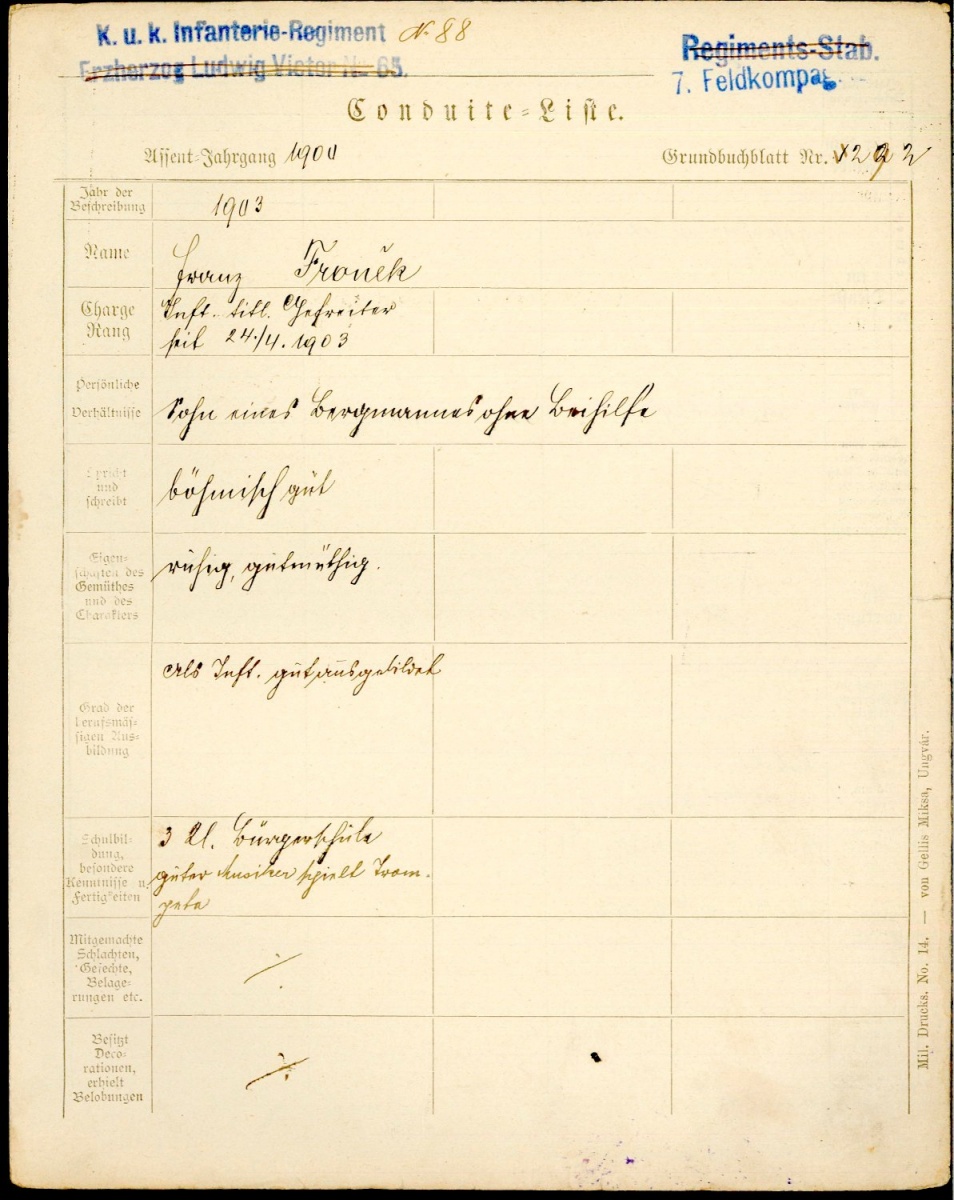 K. u. k. Infanterie-Regiment N. 88
Erzherzog Ludwig Victor Nr. 65.
Regiments-Stab.
7. Feldkompag.
Conduite-Liste.
Assent-Jahrgang 1900
Grundbuchblatt Nr. 292
Jahr der
Beschreibung
1903
Name
Franz Frouěk
Charge
Rang
Inft. titl. Gefreiter
seit 24./4. 1903
Persönliche
Verhältnisse
Sohn eines Bergmannes ohne Beihilfe
Spricht
und
schreibt
böhmisch gut
Eigen-
schaften des
Gemüthes
und des
Charakters
ruhig, gutmüthig.
Grad der
berufsmäs-
sigen Aus-
bildung
Als Inft. gut ausgebildet
Schulbil-
dung,
besondere
Kenntnisse u.
Fertigkeiten
3 Kl. Bürgerschule
guter Musiker spielt Trom-
pete
Mitgemachte
Schlachten,
Gefechte,
Belage-
rungen etc.
Besitzt
Deco-
rationen,
erhielt
Belobungen
Mil. Drucks. No. 14. — von Gellis Miksa, Ungvár.